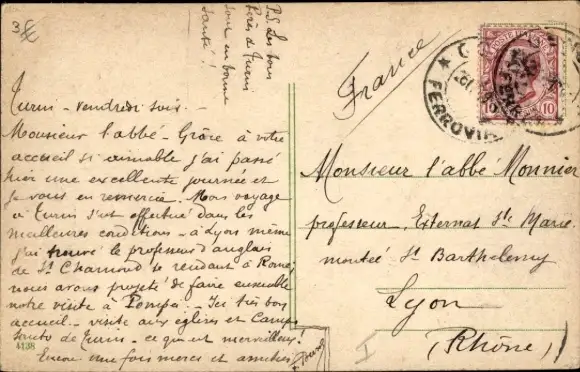 3€
P.S. Les bons
Pères de Turin
sont en bonne
santé!
Turin - vendredi soir -
Monsieur l'abbé - Grâce à votre
accueil si aimable j'ai passé
hier une excellente journée et
je vous en remercie. Mon voyage
à Turin s'est effectué dans les
meilleures conditions - à Lyon même
j'ai trouvé le professeur d'anglais
de St Chamond se rendant à Rome,
nous avons projeté de faire ensemble
notre visite à Pompéi - Ici très bon
accueil - visite aux églises et Campo
Santo de Turin - ce qui est merveilleux!
Encore une fois merci et amitiés
4138
France
POSTE ITALIANE
10 10
FERROVIA
Monsieur l'abbé Monnier
professeur, Externat Ste Marie
montée St Barthelemy
Lyon
(Rhône)
I